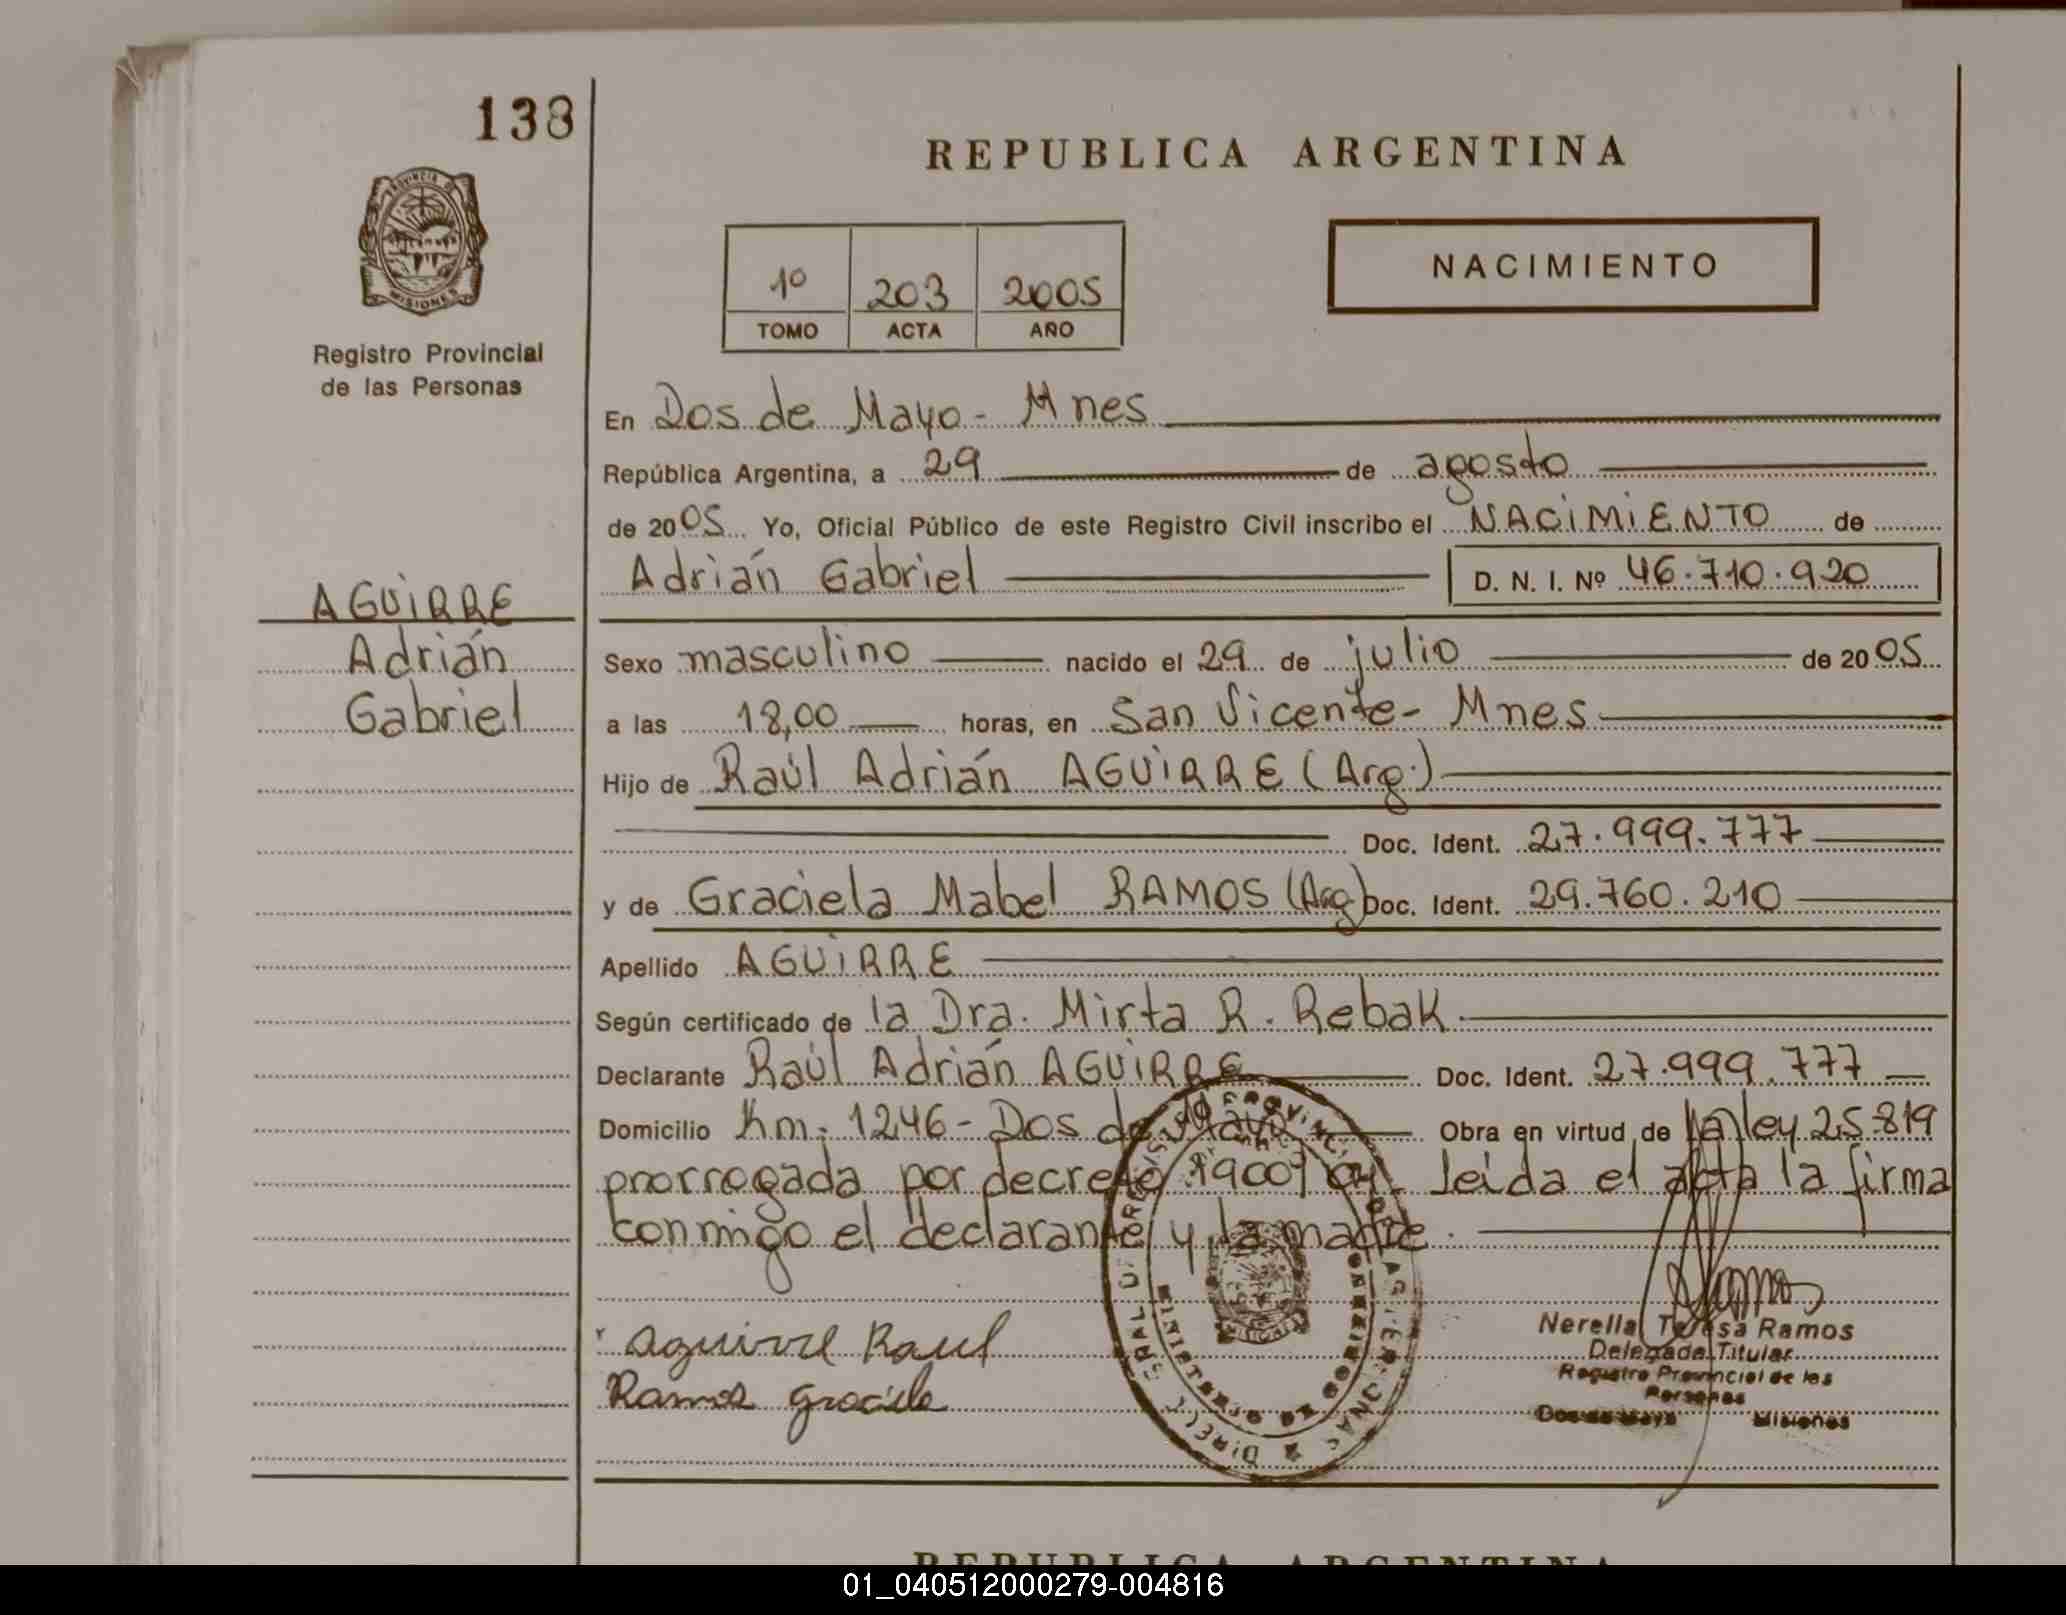 138
REPUBLICA ARGENTINA
PROVINCIA DE
MISIONES
Registro Provincial
de las Personas
1º 203 2005
TOMO ACTA AÑO
NACIMIENTO
En Dos de Mayo - Mnes
República Argentina, a 29 de agosto
de 2005 Yo, Oficial Público de este Registro Civil inscribo el NACIMIENTO de
Adrián Gabriel D. N. I. Nº 46.710.920
AGUIRRE
Adrián
Gabriel
Sexo masculino nacido el 29 de julio de 2005
a las 18,00 horas, en San Vicente - Mnes
Hijo de Raúl Adrián AGUIRRE (Arg.)
Doc. Ident. 27.999.777
y de Graciela Mabel RAMOS (Arg) Doc. Ident. 29.760.210
Apellido AGUIRRE
Según certificado de la Dra. Mirta R. Rebak
Declarante Raúl Adrián AGUIRRE Doc. Ident. 27.999.777
Domicilio Km. 1246 - Dos de Mayo Obra en virtud de la ley 25819
prorrogada por decreto 1900/04 leída el acta la firma
conmigo el declarante y la madre.
Aguirre Raul
Ramos Graciela
Nerella Teresa Ramos
Delegada Titular
Registro Provincial de las
Personas
Dos de Mayo Misiones
REPUBLICA ARGENTINA
01_040512000279-004816